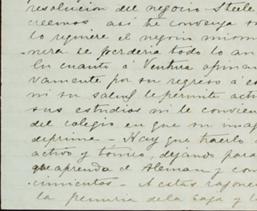 resolución del negocio Steele
creemos así he convenga se
lo requiere el negocio mism
nera se perdería todo lo an
En cuanto á Ventura opina
vamente por su regreso á e
ni su salud le permite acti
sus estudios ni le convien
del colegio en que su ima
deprima - Hay que traerlo
activo y tomis, dejando para
que aprenda el Aleman y con
cimientos - A estas razon
la penuria de la caja y l